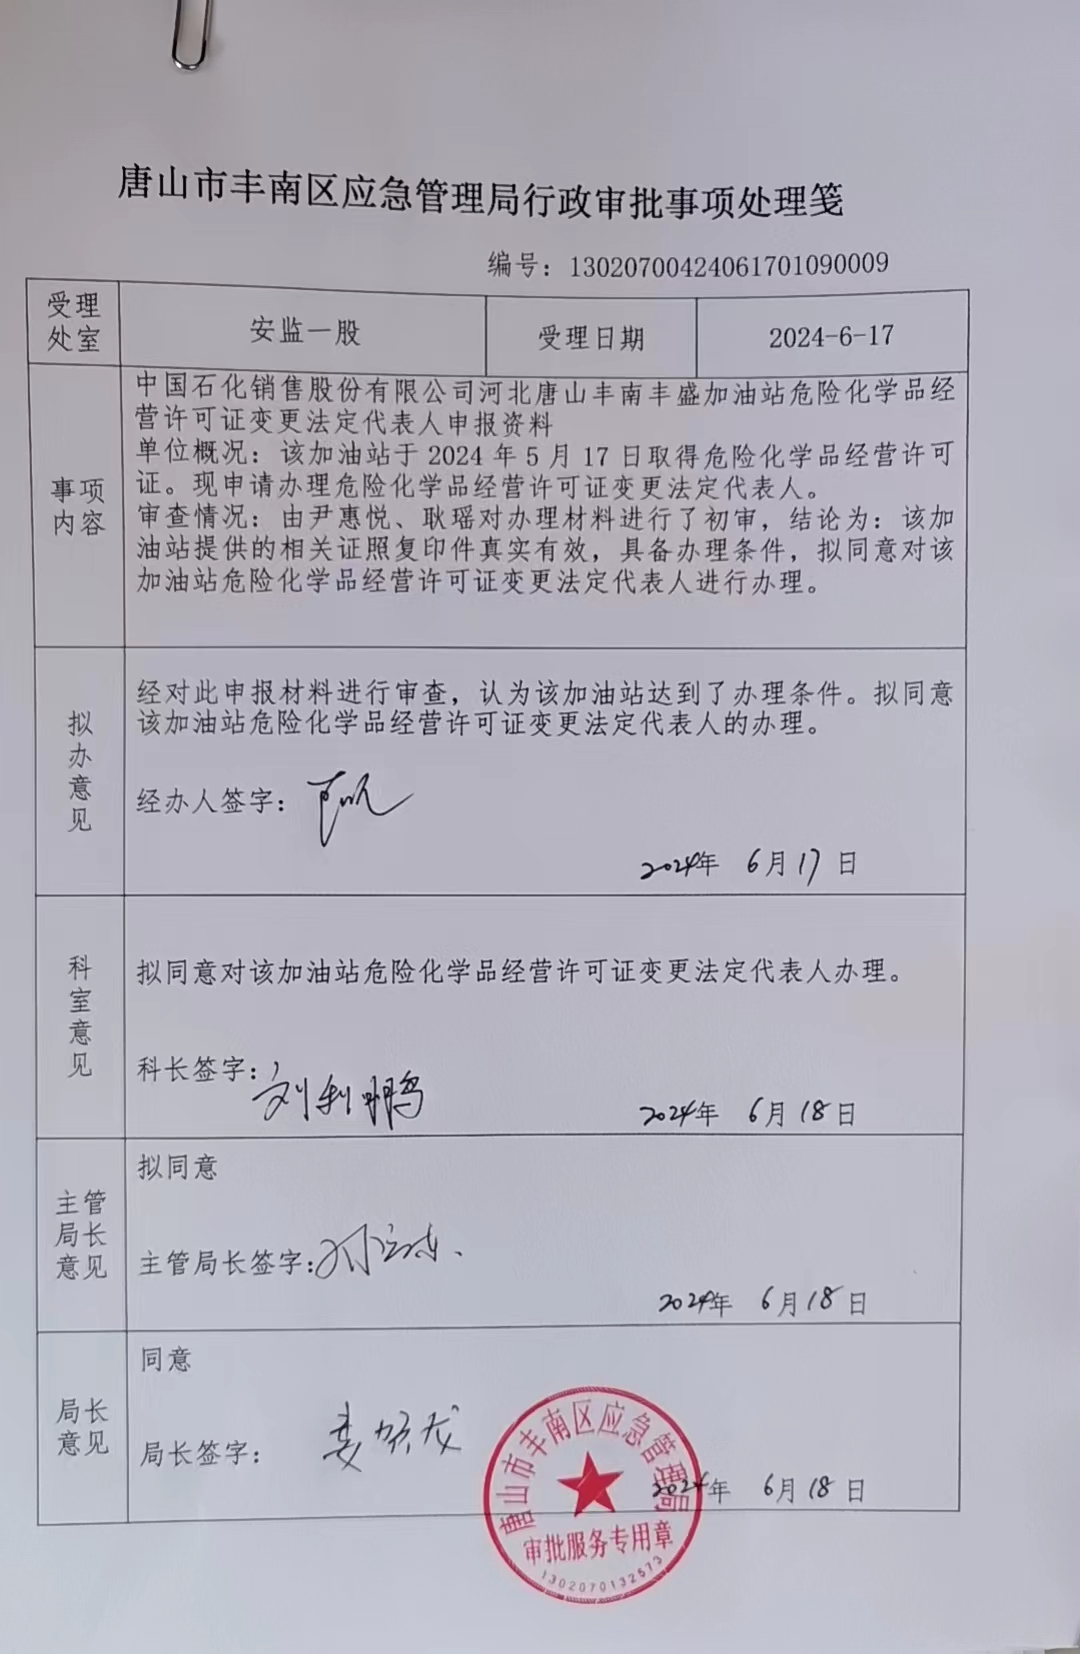 唐山市丰南区应急管理局行政审批事项处理笺
编号：13020700424061701090009
受理
处室
安监一股
受理日期
2024-6-17
事项
内容
中国石化销售股份有限公司河北唐山丰南丰盛加油站危险化学品经
营许可证变更法定代表人申报资料
单位概况：该加油站于 2024 年 5 月 17 日取得危险化学品经营许可
证。现申请办理危险化学品经营许可证变更法定代表人。
审查情况：由尹惠悦、耿瑶对办理材料进行了初审，结论为：该加
油站提供的相关证照复印件真实有效，具备办理条件，拟同意对该
加油站危险化学品经营许可证变更法定代表人进行办理。
拟
办
意
见
经对此申报材料进行审查，认为该加油站达到了办理条件。拟同意
该加油站危险化学品经营许可证变更法定代表人的办理。
经办人签字：
2024年 6月17日
科
室
意
见
拟同意对该加油站危险化学品经营许可证变更法定代表人办理。
科长签字：刘利鹏
2024年 6月18日
主管
局长
意见
拟同意
主管局长签字：
2024年 6月18日
局长
意见
同意
局长签字：
2024年 6月18日
唐山市丰南区应急管理局
审批服务专用章
1302070132573